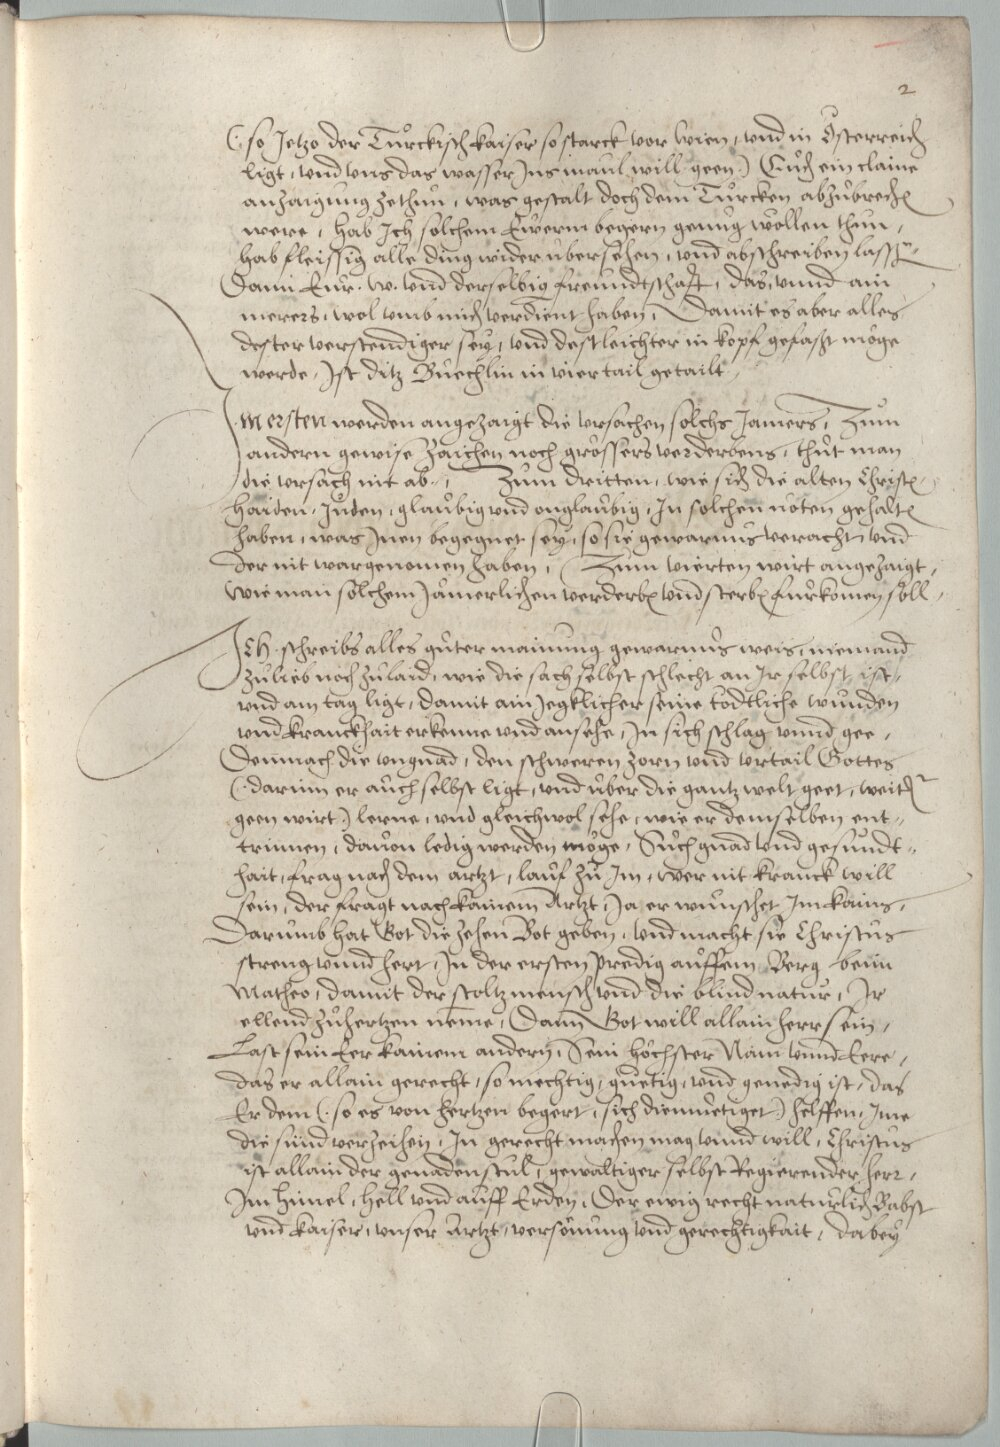 2
(: so Jetzo der Türckisch kaiser so starck vor wien, vnd in Österreich
ligt, vnd vns das wasser Jns maul will geen :) Euch ein claine
anzaigung zethun, was gestalt doch dem Türcken abzubrechen
were, hab Jch solchem Ewerm begern genug wöllen thun,
hab fleissig alle ding wider übersehen, vnd abschreiben lassen
Dann Eur. W. vnd derselbig freundtschafft, das, vnnd ain
merers, wol vmb mich verdient haben, Damit es aber alles
dester verstendiger sey, vnd dest leichter in kopf gefaßt möge
werde, Jst ditz Büechlin in vier tail getailt,
mersten werden angezaigt die vrsachen solchs Jamers, Zum
andern gewise zaichen noch grössers verderbens, thut man
die vrsach nit ab, Zum dritten, wie sich die alten Christen
Haiden, Juden, glaubig vnd onglaubig, Jn solchen nöten gehalten
haben, was Jnen begegnet sey, so sie gewarnus veracht vnd
der nit wargenomen haben, Zum vierten wirt angezaigt,
wie man solchem Jämerlichen verderben vnd sterben fürkomen söll,
JCh schreibs alles guter mainung gewarnus weis, niemand
zulieb noch zulaid, wie die sach selbst schlecht an Jr selbst ist,
vnd am tag ligt, damit ain Jegklicher seine tödtliche wunden
vnd kranckhait erkenne vnd ansehe, Jn sich schlag vnnd gee,
Demnach die vngnad, den schweren zorn vnd vrtail Gottes
(: darinn er auch selbst ligt, vnd über die gantz welt geet, weiter
geen wirt :) lerne, vnd gleichwol sehe, wie er demselben ent-
trinnen, dauon ledig werden möge, Such gnad vnd gesundt-
hait, frag nach dem artzt, lauf zu Jm, wer nit kranck will
sein, der fragt nach kainem Artzt, Ja er wünschet Jm kains,
Darumb hat Got die zehen Bot geben, vnd macht sie Christus
streng vnnd hert, Jn der ersten predig auffem Berg beim
Matheo, damit der stoltz mensch vnd die blind natur, Jr
ellend zuhertzen neme, Dann Got will allain herr sein,
Last sein Eer kainem andern, Sein höchster Nam vnnd Eere,
das er allain gerecht, so mechtig, guetig, vnd genedig ist, das
Er dem (: so es von hertzen begert, sich diemüetiget :) helffen, Jme
die sünd verzeihen, Jn gerecht machen mag vnnd will, Christus
ist allain der genadenstul, gewaltiger selbst Regierender herr,
Jm himel, hell vnd auff Erden, Der ewig recht natürlich Babst
vnd kaiser, vnser Artzt, versönung vnd gerechtigkait, dabey